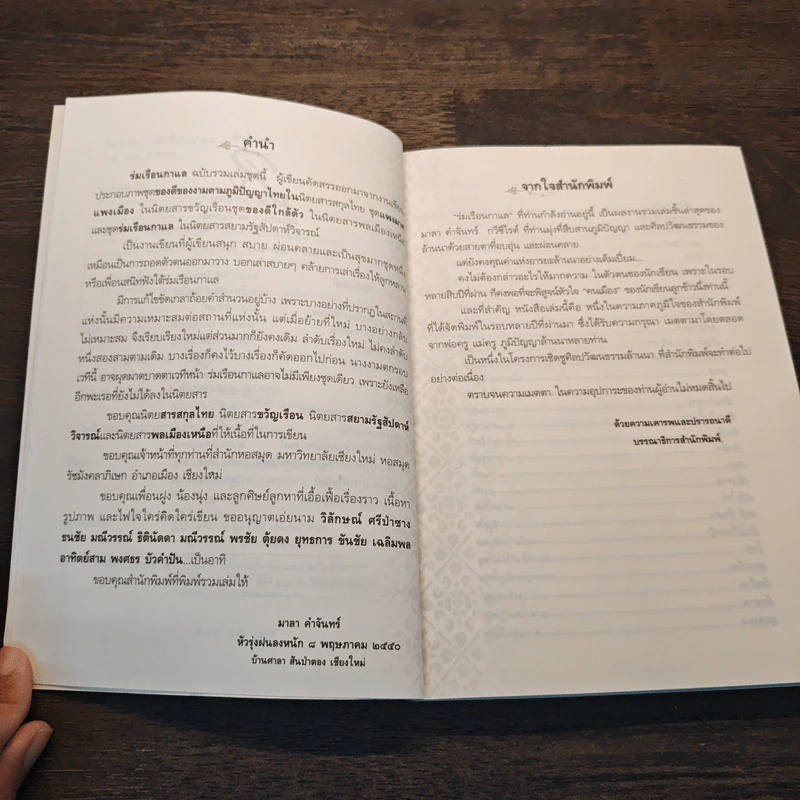 คำนำ
ร่มเรือนกาแล ฉบับรวมเล่มชุดนี้ ผู้เขียนคัดสรรออกมาจากงานเขียน
ประกอบภาพชุดของดีของงามตามภูมิปัญญาไทยในนิตยสารสกุลไทย ชุด
แพงเมือง ในนิตยสารขวัญเรือนชุดของดีใกล้ตัว ในนิตยสารพลเมืองเหนือ
และชุดร่มเรือนกาแล ในนิตยสารสยามรัฐสัปดาห์วิจารณ์
เป็นงานเขียนที่ผู้เขียนสนุก สบาย ผ่อนคลายและเป็นสุขมากชุดหนึ่ง
เหมือนเป็นการถอดตัวตนออกมาวาง บอกเล่าสบายๆ คล้ายการเล่าเรื่องให้ลูกหลาน
หรือเพื่อนสนิทฟังใต้ร่มเรือนกาแล
มีการแก้ไขขัดเกลาถ้อยคำสำนวนอยู่บ้าง เพราะบางอย่างที่ปรากฏในสถานที่
แห่งนั้นมีความเหมาะสมต่อสถานที่แห่งนั้น แต่เมื่อย้ายที่ใหม่ บางอย่างกลับ
ไม่เหมาะสม จึงเรียบเรียงใหม่แต่ส่วนมากก็ยังคงเดิม ลำดับเรื่องใหม่ ไม่คงลำดับ
หนึ่งสองสามตามเดิม บางเรื่องก็คงไว้บางเรื่องก็คัดออกไปก่อน นางงามตกรอบ
เวทีนี้ อาจผุดผาดบาดตาเวทีหน้า ร่มเรือนกาแลอาจไม่มีเพียงชุดเดียว เพราะยังเหลือ
อีกพะเรอที่ยังไม่ได้ลงในนิตยสาร
ขอบคุณนิตยสารสกุลไทย นิตยสารขวัญเรือน นิตยสารสยามรัฐสัปดาห์
วิจารณ์และนิตยสารพลเมืองเหนือที่ให้เนื้อที่ในการเขียน
ขอบคุณเจ้าหน้าที่ทุกท่านที่สำนักหอสมุด มหาวิทยาลัยเชียงใหม่ หอสมุด
รัชมังคลาภิเษก อำเภอเมือง เชียงใหม่
ขอบคุณเพื่อนฝูง น้องนุ่ง และลูกศิษย์ลูกหาที่เอื้อเฟื้อเรื่องราว เนื้อหา
รูปภาพ และไฟใจใคร่คิดใคร่เขียน ขออนุญาตเอ่ยนาม วิลักษณ์ ศรีป่าซาง
ธนชัย มณีวรรณ์ ธิตินัดดา มณีวรรณ์ พรชัย ตุ้ยดง ยุทธการ ขันชัย เฉลิมพล
อาทิตย์สาม พงศธร บัวคำปัน...เป็นอาทิ
ขอบคุณสำนักพิมพ์ที่พิมพ์รวมเล่มให้
มาลา คำจันทร์
หัวรุ่งฝนลงหนัก ๘ พฤษภาคม ๒๕๕๐
บ้านศาลา สันป่าตอง เชียงใหม่
จากใจสำนักพิมพ์
"ร่มเรือนกาแล" ที่ท่านกำลังอ่านอยู่นี้ เป็นผลงานรวมเล่มชิ้นล่าสุดของ
มาลา คำจันทร์ กวีซีไรต์ ที่ท่านมุ่งที่สืบสานภูมิปัญญา และศิลปวัฒนธรรมของ
ล้านนาด้วยสายตาที่อบอุ่น และผ่อนคลาย
แต่ยังคงคุณค่าแห่งอารยะล้านนาอย่างเต็มเปี่ยม...
คงไม่ต้องกล่าวอะไรให้มากความ ในตัวตนของนักเขียน เพราะในรอบ
หลายสิบปีที่ผ่าน ก็คงพอที่จะพิสูจน์หัวใจ "คนเมือง" ของนักเขียนลูกข้าวนึ่งท่านนี้
และที่สำคัญ หนังสือเล่มนี้คือ หนึ่งในความภาคภูมิใจของสำนักพิมพ์
ที่ได้จัดพิมพ์ในรอบหลายปีที่ผ่านมา ซึ่งได้รับความกรุณา เมตตามาโดยตลอด
จากพ่อครู แม่ครู ภูมิปัญญาล้านนาหลายท่าน
เป็นหนึ่งในโครงการเชิดชูศิลปวัฒนธรรมล้านนา ที่สำนักพิมพ์จะทำต่อไป
อย่างต่อเนื่อง
ตราบจนความเมตตา ในความอุปการะของท่านผู้อ่านไม่หมดสิ้นไป
ด้วยความเคารพและปรารถนาดี
บรรณาธิการสำนักพิมพ์